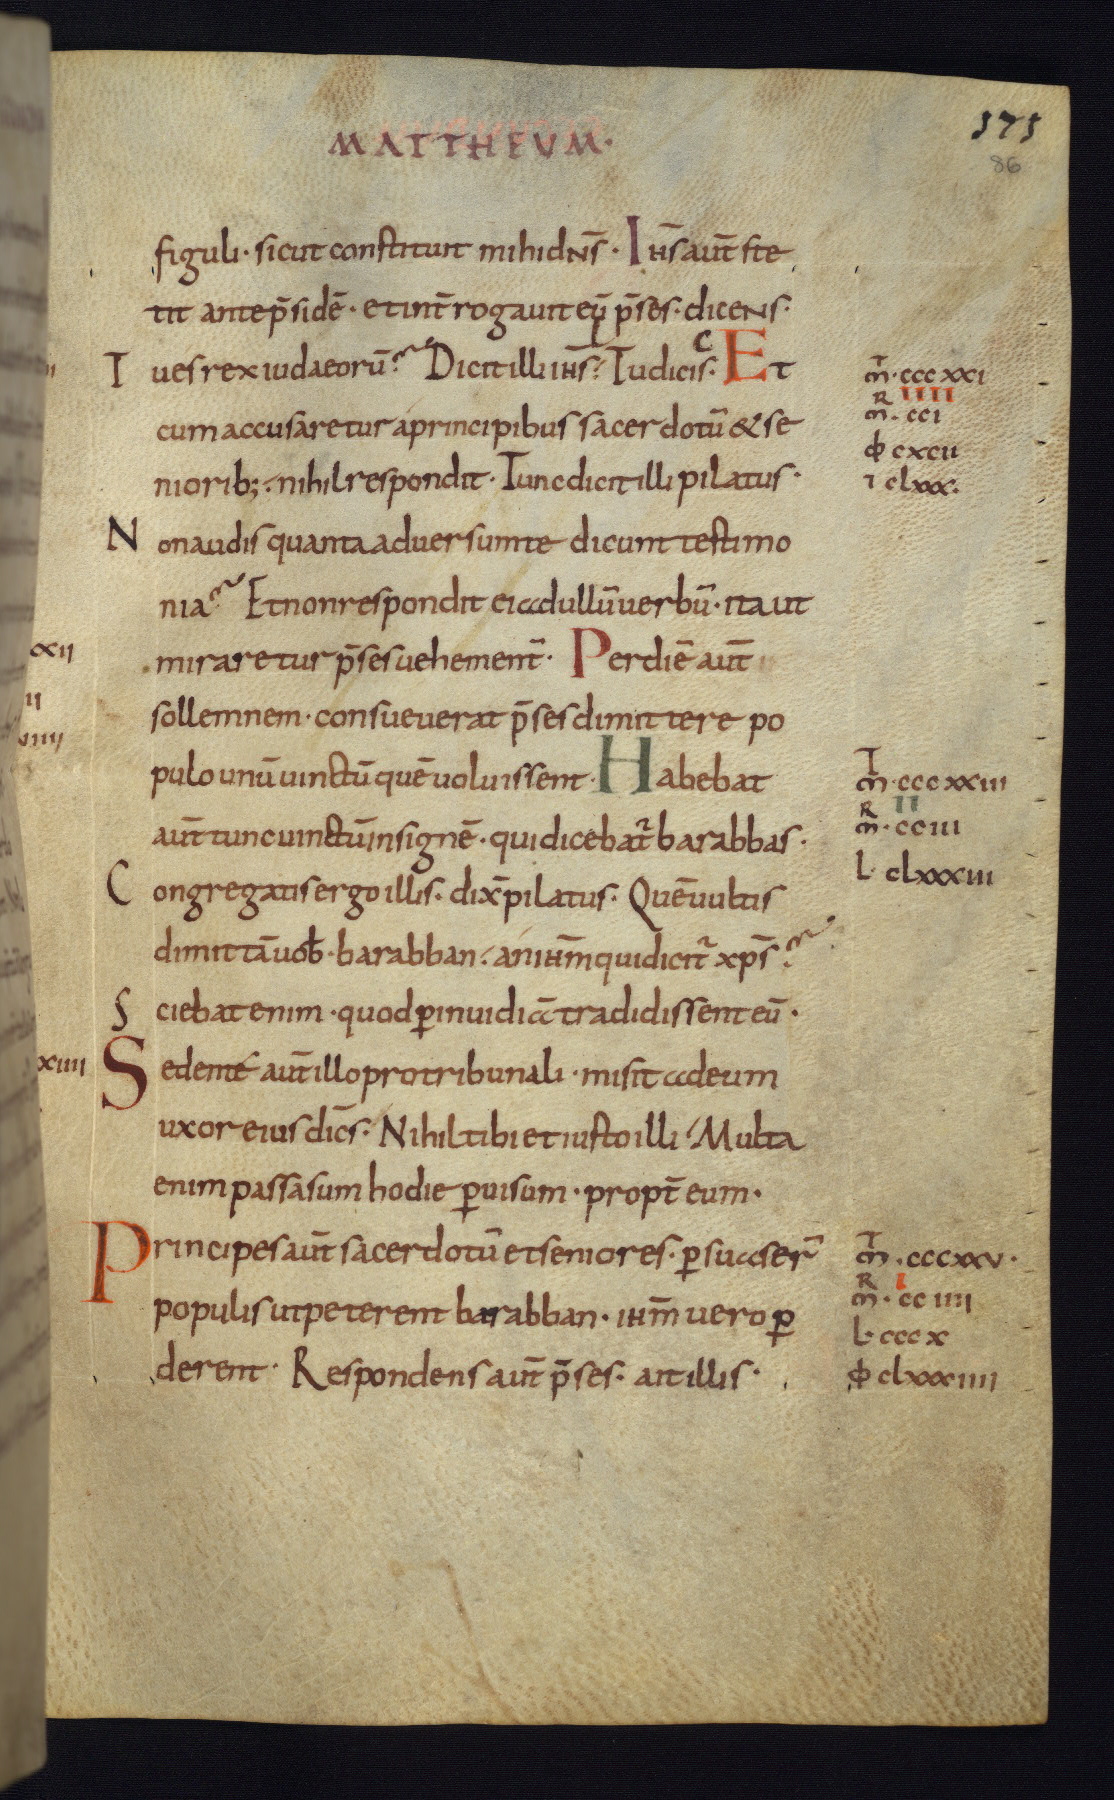 MATTHEUM·
171
86
figuli· sicut constituit mihi dn̄s· Ih̄s aut̄ ste
tit ante p̄sidē· et int̄rogauit eū p̄ses· dicens·
Tu es rex iudaeorū? Dicit illi ih̄s· Tu dicis· Et
cum accusaretur a principibus sacerdotū & se
niorib; · nihil respondit· Tunc dicit illi pilatus·
Non audis quanta aduersum te dicunt testimo
nia? Et non respondit ei ad ullū uerbū· ita ut
miraretur p̄ses uehement̄· Per diē aut̄
sollemnem· consueuerat p̄ses dimittere po
pulo unū uinctū quē uoluissent· Habebat
aut̄ tunc uinctū insignē· qui dicebat̄ barabbas·
Congregatis ergo illis· dix̄ pilatus· Quē uultis
dimittā uob̄· barabban· an ih̄m qui dicit̄ xp̄s?
Sciebat enim· quod ꝑ inuidia tradidissent eū·
Sedente aut̄ illo pro tribunali· misit ad eum
uxor eius dic̄s· Nihil tibi et iusto illi· Multa
enim passa sum hodie ꝑ uisum· propt̄ eum·
Principes aut̄ sacerdotū et seniores· ꝑsuaser̄
populis ut peterent barabban· ih̄m uero ꝑ
derent· Respondens aut̄ p̄ses· ait illis·
xii
ii
uiiii
xiiii
m̄· cccxxi
R iiii
m̄· cci
cxcii
i clxxx·
m̄· cccxxiii
R ii
m̄· cciii
L· clxxxiii
m̄· cccxxv·
R i
m̄· cciiii
L· cccx
clxxxiiii